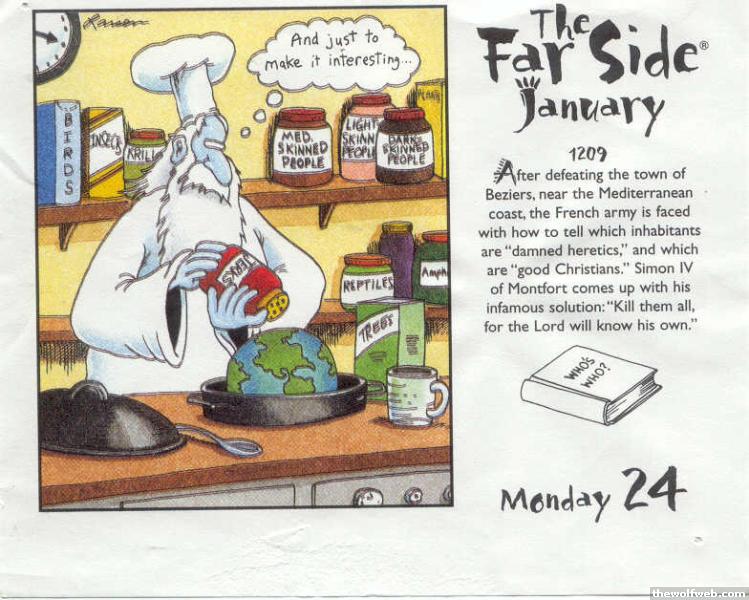 Larson
And just to
make it interesting...
BIRDS
INSECTS
KRILL
MED.
SKINNED
PEOPLE
LIGHT
SKINN
PEOPLE
DARK
SKINNED
PEOPLE
JERKS
REPTILES
TREES
The
Far Side®
January
1209
After defeating the town of
Beziers, near the Mediterranean
coast, the French army is faced
with how to tell which inhabitants
are “damned heretics,” and which
are “good Christians.” Simon IV
of Montfort comes up with his
infamous solution: “Kill them all,
for the Lord will know his own.”
WHO'S
WHO?
Monday 24
thewolfweb.com